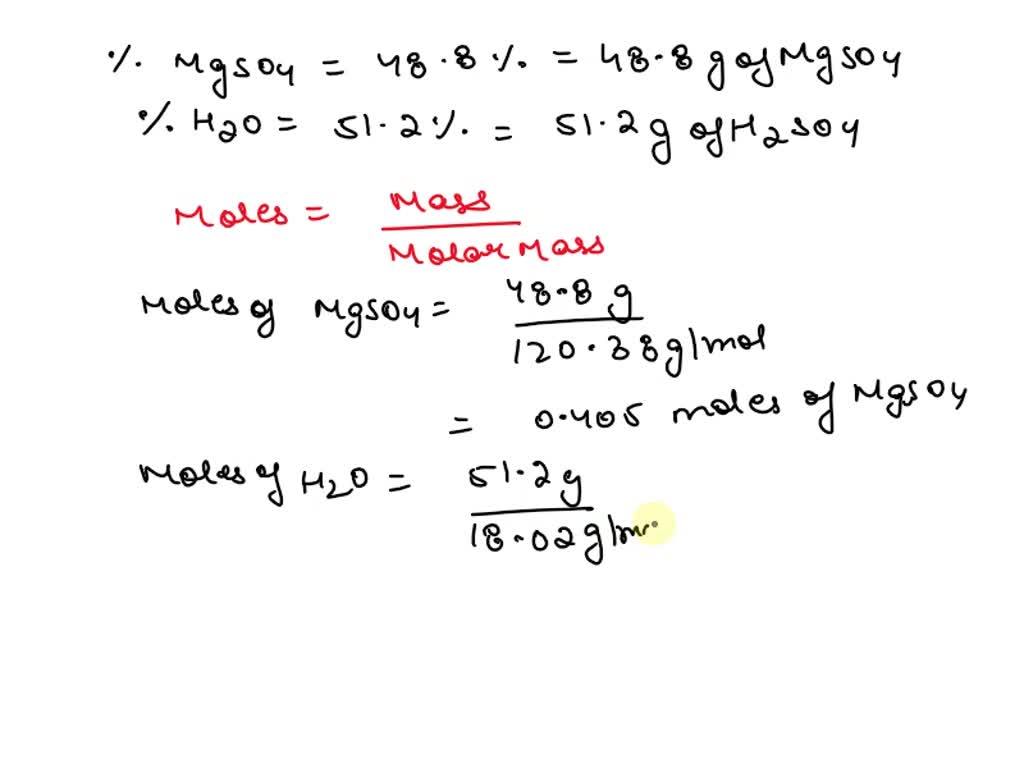 % MgSO4 = 48.8 % = 48.8 g of MgSO4
% H2O = 51.2 % = 51.2 g of H2SO4
Moles = Mass / Molar Mass
Moles of MgSO4 = 48.8 g / 120.38 g/mol
= 0.405 moles of MgSO4
Moles of H2O = 51.2 g / 18.02 g/mo